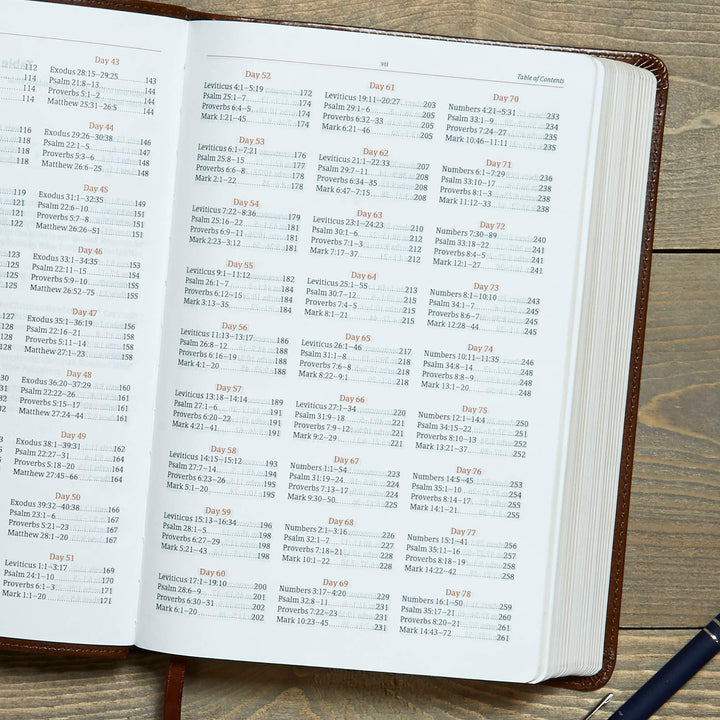 112
114
114
116
118
118
119
121
121
123
125
125
128
128
Day 43
Exodus 28:15–29:25 143
Psalm 21:8–13 144
Proverbs 5:1–2 144
Matthew 25:31–26:5 144
Day 44
Exodus 29:26–30:38 146
Psalm 22:1–5 147
Proverbs 5:3–6 148
Matthew 26:6–25 148
Day 45
Exodus 31:1–32:35 149
Psalm 22:6–10 151
Proverbs 5:7–8 151
Matthew 26:26–51 151
Day 46
Exodus 33:1–34:35 153
Psalm 22:11–15 154
Proverbs 5:9–10 155
Matthew 26:52–75 155
Day 47
Exodus 35:1–36:19 156
Psalm 22:16–21 158
Proverbs 5:11–14 158
Matthew 27:1–23 158
Day 48
Exodus 36:20–37:29 160
Psalm 22:22–26 161
Proverbs 5:15–17 161
Matthew 27:24–44 161
Day 49
Exodus 38:1–39:31 162
Psalm 22:27–31 164
Proverbs 5:18–20 164
Matthew 27:45–66 164
Day 50
Exodus 39:32–40:38 166
Psalm 23:1–6 167
Proverbs 5:21–23 167
Matthew 28:1–20 167
Day 51
Leviticus 1:1–3:17 169
Psalm 24:1–10 170
Proverbs 6:1–3 171
Mark 1:1–20 171
vii
Table of Contents
Day 52
Leviticus 4:1–5:19 172
Psalm 25:1–7 174
Proverbs 6:4–5 174
Mark 1:21–45 174
Day 53
Leviticus 6:1–7:21 176
Psalm 25:8–15 177
Proverbs 6:6–8 178
Mark 2:1–22 178
Day 54
Leviticus 7:22–8:36 179
Psalm 25:16–22 181
Proverbs 6:9–11 181
Mark 2:23–3:12 181
Day 55
Leviticus 9:1–11:12 182
Psalm 26:1–7 184
Proverbs 6:12–15 184
Mark 3:13–35 184
Day 56
Leviticus 11:13–13:17 186
Psalm 26:8–12 188
Proverbs 6:16–19 188
Mark 4:1–20 188
Day 57
Leviticus 13:18–14:14 189
Psalm 27:1–6 191
Proverbs 6:20–22 191
Mark 4:21–41 191
Day 58
Leviticus 14:15–15:12 193
Psalm 27:7–14 194
Proverbs 6:23–26 195
Mark 5:1–20 195
Day 59
Leviticus 15:13–16:34 196
Psalm 28:1–5 198
Proverbs 6:27–29 198
Mark 5:21–43 198
Day 60
Leviticus 17:1–19:10 200
Psalm 28:6–9 201
Proverbs 6:30–31 202
Mark 6:1–20 202
Day 61
Leviticus 19:11–20:27 203
Psalm 29:1–6 205
Proverbs 6:32–33 205
Mark 6:21–46 205
Day 62
Leviticus 21:1–22:33 207
Psalm 29:7–11 208
Proverbs 6:34–35 208
Mark 6:47–7:15 208
Day 63
Leviticus 23:1–24:23 210
Psalm 30:1–6 212
Proverbs 7:1–3 212
Mark 7:17–37 212
Day 64
Leviticus 25:1–55 213
Psalm 30:7–12 215
Proverbs 7:4–5 215
Mark 8:1–21 215
Day 65
Leviticus 26:1–46 217
Psalm 31:1–8 218
Proverbs 7:6–8 218
Mark 8:22–9:1 218
Day 66
Leviticus 27:1–34 220
Psalm 31:9–18 221
Proverbs 7:9–12 221
Mark 9:2–29 221
Day 67
Numbers 1:1–54 223
Psalm 31:19–24 225
Proverbs 7:13–17 225
Mark 9:30–50 225
Day 68
Numbers 2:1–3:16 226
Psalm 32:1–7 227
Proverbs 7:18–21 228
Mark 10:1–22 228
Day 69
Numbers 3:17–4:20 229
Psalm 32:8–11 231
Proverbs 7:22–23 231
Mark 10:23–45 231
Day 70
Numbers 4:21–5:31 233
Psalm 33:1–9 234
Proverbs 7:24–27 235
Mark 10:46–11:11 235
Day 71
Numbers 6:1–7:29 236
Psalm 33:10–17 238
Proverbs 8:1–3 238
Mark 11:12–33 238
Day 72
Numbers 7:30–89 240
Psalm 33:18–22 241
Proverbs 8:4–5 241
Mark 12:1–27 241
Day 73
Numbers 8:1–10:10 243
Psalm 34:1–7 245
Proverbs 8:6–7 245
Mark 12:28–44 245
Day 74
Numbers 10:11–11:35 246
Psalm 34:8–14 248
Proverbs 8:8–9 248
Mark 13:1–20 248
Day 75
Numbers 12:1–14:4 250
Psalm 34:15–22 251
Proverbs 8:10–13 252
Mark 13:21–37 252
Day 76
Numbers 14:5–45 253
Psalm 35:1–10 254
Proverbs 8:14–17 255
Mark 14:1–21 255
Day 77
Numbers 15:1–41 256
Psalm 35:11–16 257
Proverbs 8:18–19 258
Mark 14:22–42 258
Day 78
Numbers 16:1–50 259
Psalm 35:17–21 260
Proverbs 8:20–21 261
Mark 14:43–72 261